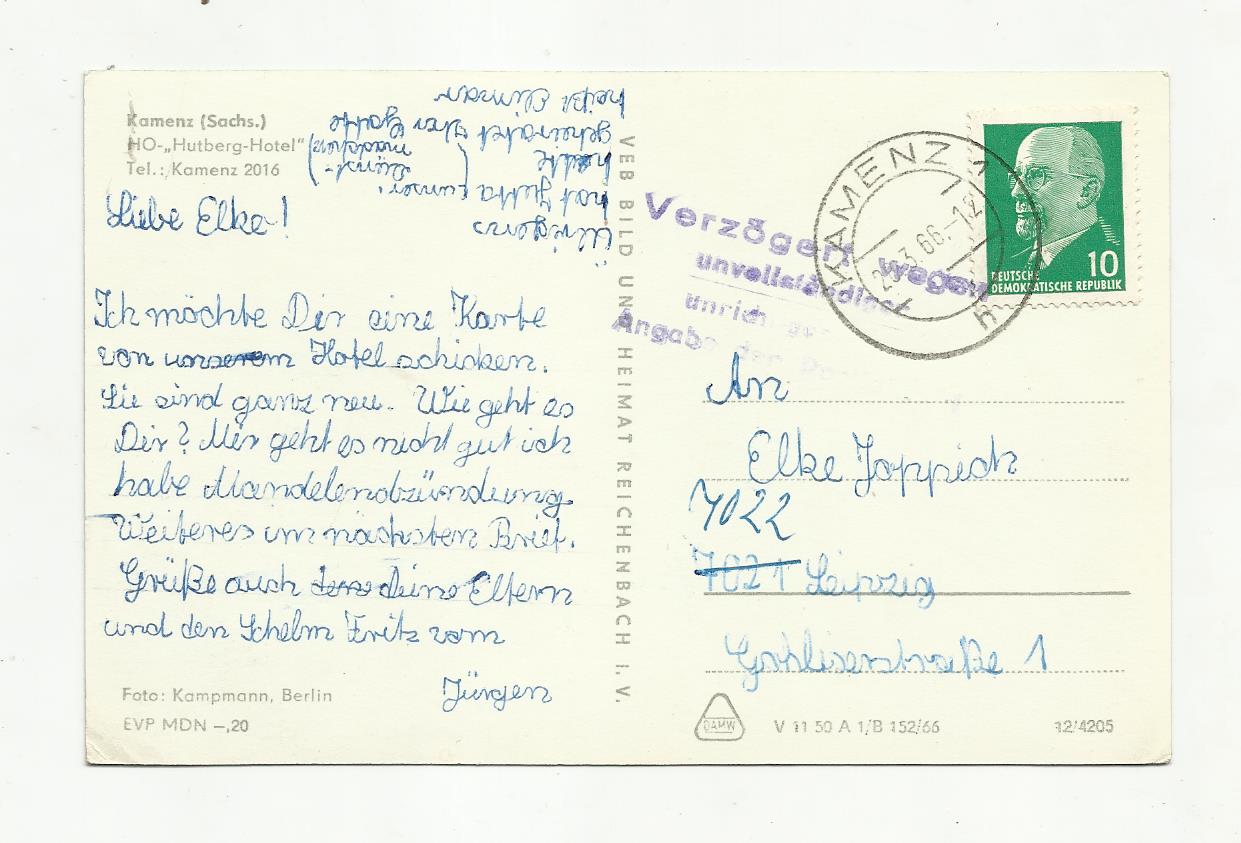 Kamenz (Sachs.)
HO-„Hutberg-Hotel"
Tel.: Kamenz 2016
Liebe Elke!
Ich möchte Dir eine Karte
von unserem Hotel schicken.
Sie sind ganz neu. Wie geht es
Dir? Mir geht es nicht gut ich
habe Mandelendbzündung
Weiteres im nächsten Brief.
Grüße auch deine Eltern
und den Schelm Fritz vom
Jürgen
Übrigens
hat Jutta unser
hatte
geheiratet Ihr Gatte
heißt
Foto: Kampmann, Berlin
EVP MDN –,20
VEB BILD UND HEIMAT REICHENBACH I. V.
Verzögert wegen
unvollständiger
unrich
Angabe der
KAMENZ 1
.3.66.-12
h
DEUTSCHE
DEMOKRATISCHE REPUBLIK
10
An
Elke Joppich
7022
7021 Leipzig
Gohliserstraße 1
DAMW
V 11 50 A 1/B 152/66
12/4205